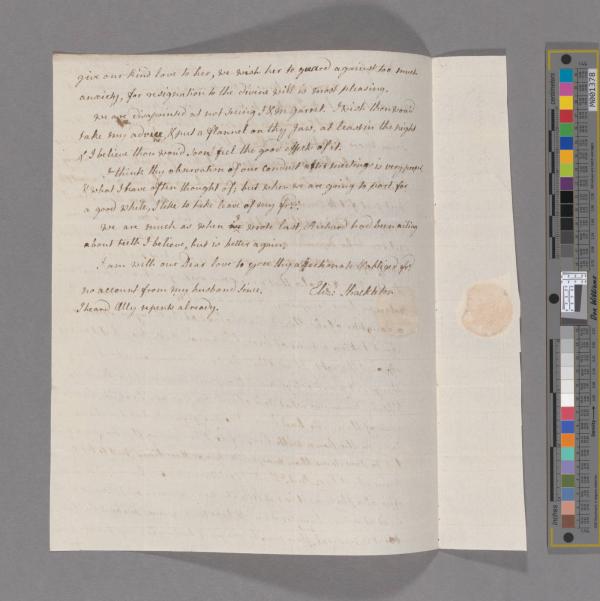 give our kind love to her, we wish her to guard against too much
anxiety, for resignation to the divine will is most pleasing.
we are disapointed at not seeing I & M Garret. I wish thou woud
take my advice & put a flannel on thy Jaw, at least in the night
& I believe thou woud soon feel the good effects of it.
I think thy observation of our conduct after meetings is very
& what I have often thought of; but when we are going to part for
a good while, I like to take leave of my
we are much as when we wrote last, Richard had been ailing
about teeth I believe, but is better again,
I am with our Dear love to you thy affectionate & obliged
no account from my husband since. Eliz: Shackleton
I heard Ally repents already.
M0001378
centimeters
inches
Don Williams
Density